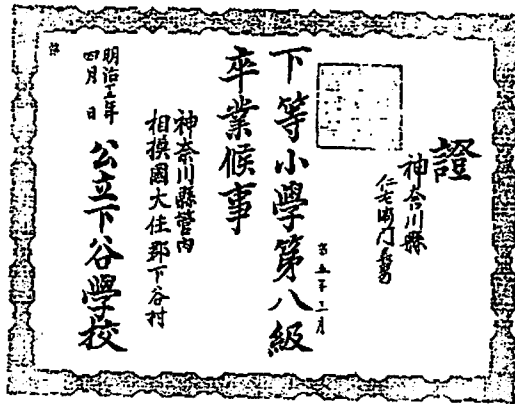 證
神奈川縣
仁左衛門長男
下等小學第八級
卒業候事
神奈川縣管内
相摸國大住郡下谷村
明治
四月 日
公立下谷學校